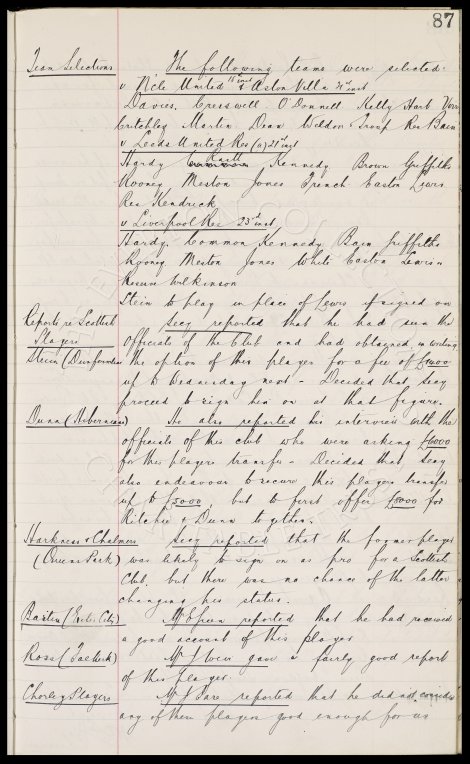 87
Team Selections The following teams were selected:
v N'cle United 18th inst & Aston Villa 21st inst
Davies, Cresswell O'Donnell Kelly Hart Virr
Critchley Martin Dean Weldon Troup Res Bain
v Leeds United Res (a) 21st inst
Hardy Raitt Kennedy Brown Griffiths
Rooney Meston Jones French Easton Lewis
Res Kendrick
v Liverpool Res 25th inst
Hardy Common Kennedy Bain Griffiths
Rooney Meston Jones White Easton Lewis -
Reserve Wilkinson
Stein to play in place of Lewis if signed on
Reports re Scottish Secy reported that he had seen the
Players officials of the Club and had obtained in writing
Stein (Dunfermline the option of this player for a fee of
up to Wednesday next - Decided that Secy
proceed to sign him on at that figure.
Dunn (Hibernians) He also reported his interview with the
officials of this club who were asking £6000
for this players transfer - Decided that Secy
also endeavour to secure this players transfer
up to £5000, but to first offer £8000 for
Ritchie & Dunn together.
Harkness & Chalmers Secy reported that the former player
(Queens Park) was likely to sign on as pro for a Scottish
Club, but there was no chance of the latter
changing his status.
Baxter (Exeter City) Mr reported that he had received
a good account of this player
Ross (Falkirk) Mr gave a fairly good report
of this player.
Chorley Players Mr reported that he did not consider
any of these players good enough for us